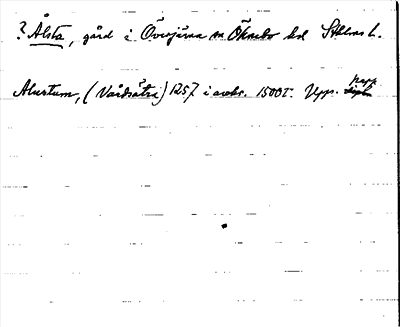 ? Ålsta, gård i Överjärna sn Öknebo hd Sthlms l.
Alurstum, (Vårdsätra) 1257 i avskr. 1500 t. Upps. papp